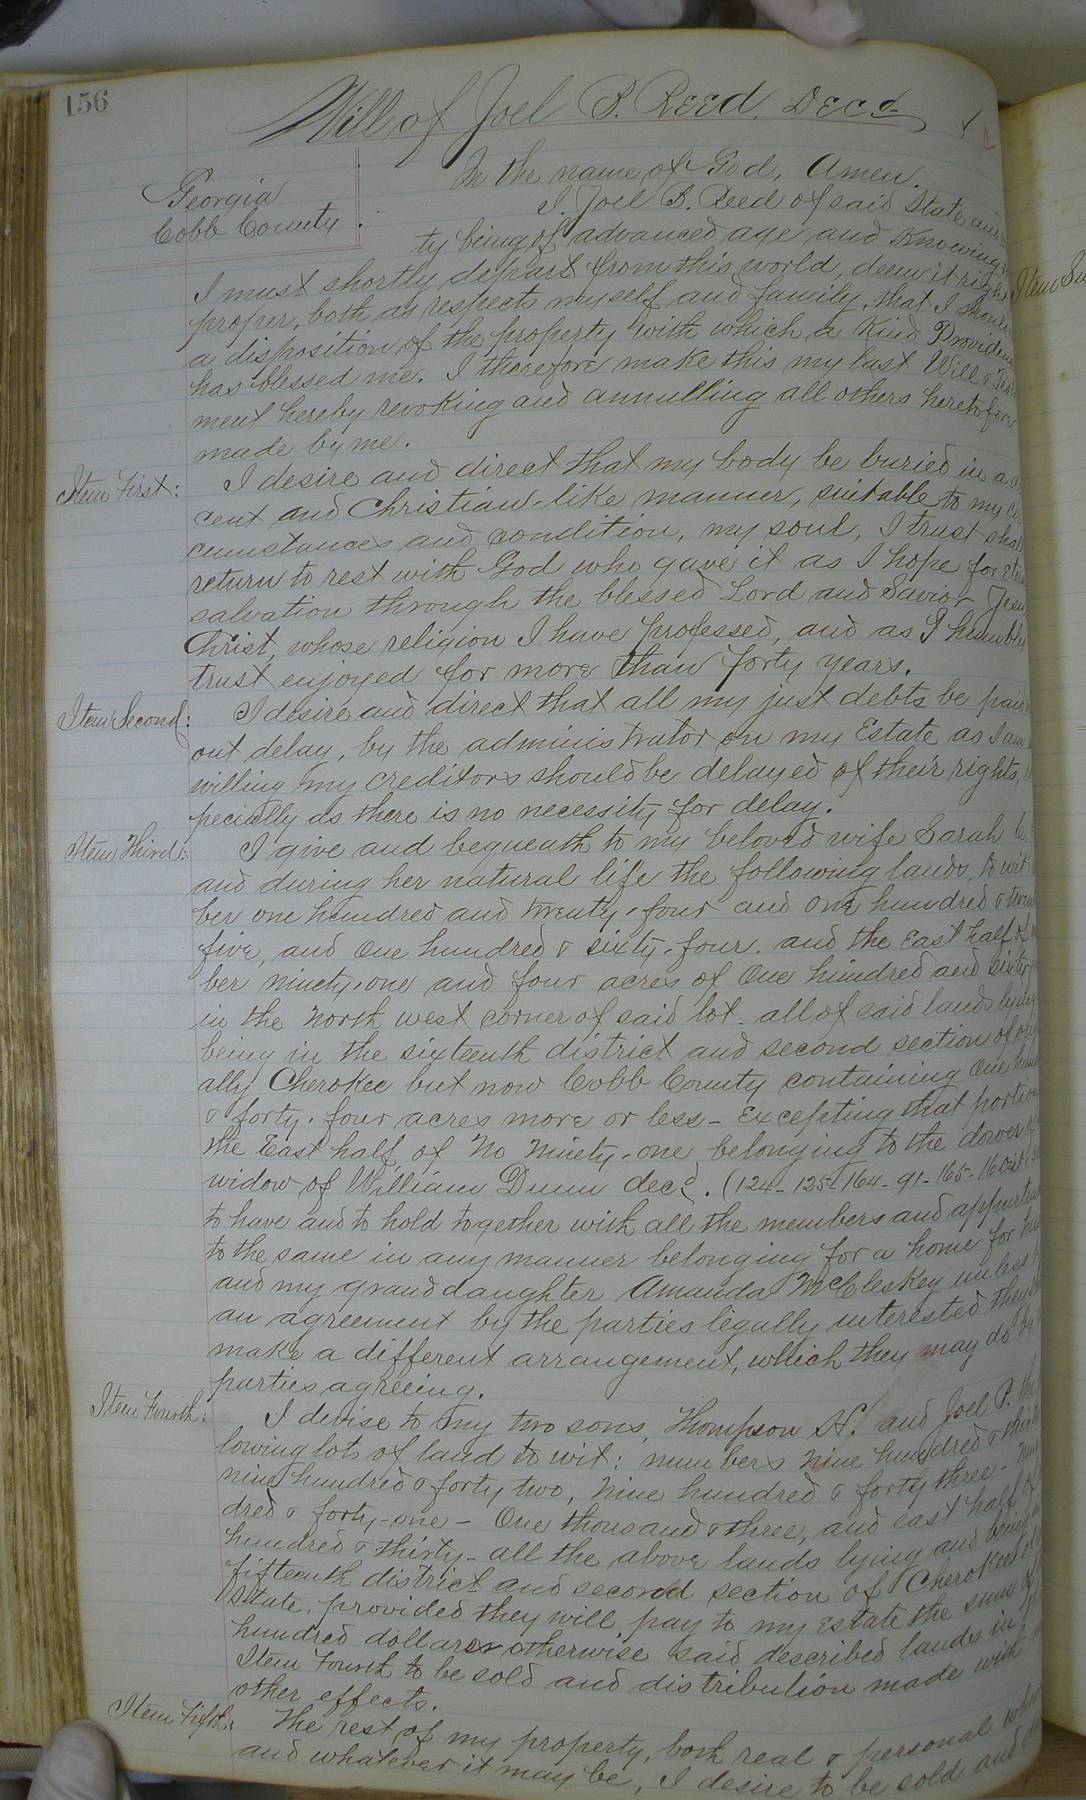 156
Will of Joel B. Reed. Decd
Georgia
Cobb County
In the name of God, Amen.
I. Joel B. Reed of said State
ty being of advanced age and Knowing
I must shortly depart from this world, deem it right
proper, both as respects myself and family, that I should
a disposition of the property with which a Kind Providence
has blessed me. I therefore make this my last Will & Tes
ment hereby revoking and annulling all others heretofore
made by me.
Item First:
I desire and direct that my body be buried in a
cent and Christian-like manner, suitable to my
cumstances and condition, my soul, I trust shall
return to rest with God who gave it as I hope for
salvation through the blessed Lord and Savior Jesus
Christ, whose religion I have professed, and as I humbly
trust enjoyed for more than forty years.
Item Second:
I desire and direct that all my just debts be paid
out delay, by the administrator on my Estate as I am
willing my creditors should be delayed of their rights,
pecially as there is no necessity for delay.
Item Third:
I give and bequeath to my beloved wife Sarah C.
and during her natural life the following lands, to wit
ber one hundred and twenty-four and one hundred &
five, and One hundred & sixty-four. and the East half of
ber ninety-one and four acres of One hundred and sixty
in the North west corner of said lot. all of said lands lying
being in the sixteenth district and second section of
ally Cherokee but now Cobb County containing One
& forty-four acres more or less - Excepting that portion
the East half of No Ninety-one belonging to the dower
widow of William Dunn decd. (124-125-164-91-165-16
to have and to hold together with all the members and
to the same in any manner belonging for a home for
and my grand daughter Amanda McCleskey unless
an agreement by the parties legally interested they
make a different arrangement, which they may do
parties agreeing.
Item Fourth:
I devise to my two sons, Thompson H. and Joel P.
lowing lots of land to wit: numbers Nine hundred &
nine hundred & forty two, Nine hundred & forty three -
dred & forty-one - One thousand & three, and east half of
hundred & thirty - all the above lands lying and being
fifteenth district and second section of Cherokee
State, provided they will pay to my Estate the sum of
hundred dollars or otherwise said described lands in
Item Fourth to be sold and distribution made with
other effects.
Item Fifth:
The rest of my property, both real & personal
and whatever it may be, I desire to be sold and